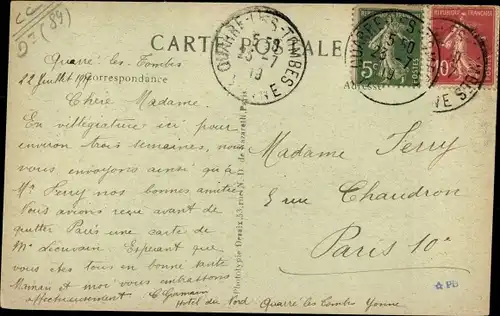 CC
D3 (89)
CARTE POSTALE
Correspondance
Adresse
QUARRE-LES-TOMBES
5 50
-7
19
YONNE
RÉPUBLIQUE FRANÇAISE
5c
POSTES
RÉPUBLIQUE FRANÇAISE
10c
Quarré les Tombes
22 Juillet 19
Chère Madame
En villégiature ici pour
environ trois semaines, nous
vous envoyons ainsi qu'à
Mr Serry nos bonnes amitiés
Nous avions reçu avant de
quitter Paris une carte de
Mr Liouvain. Espérant que
vous êtes tous en bonne santé
Maman et moi vous embrassons
affectueusement C Germain
Hotel du Nord Quarré les Tombes Yonne
Phototypie Desaix, 53, rue N. D. de Nazareth, Paris
Madame Serry
rue Chaudron
Paris 10e
☆ PD